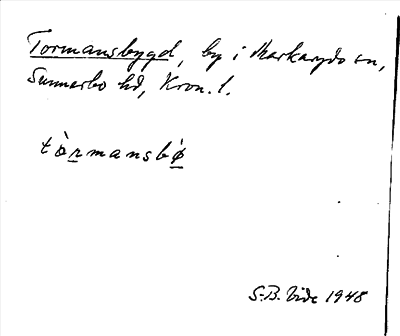 Tormansbygd, by i Markaryds sn,
Sunnerbo hd, Kron. l.
tòrmansbǿ
S.-B. Vide 1948